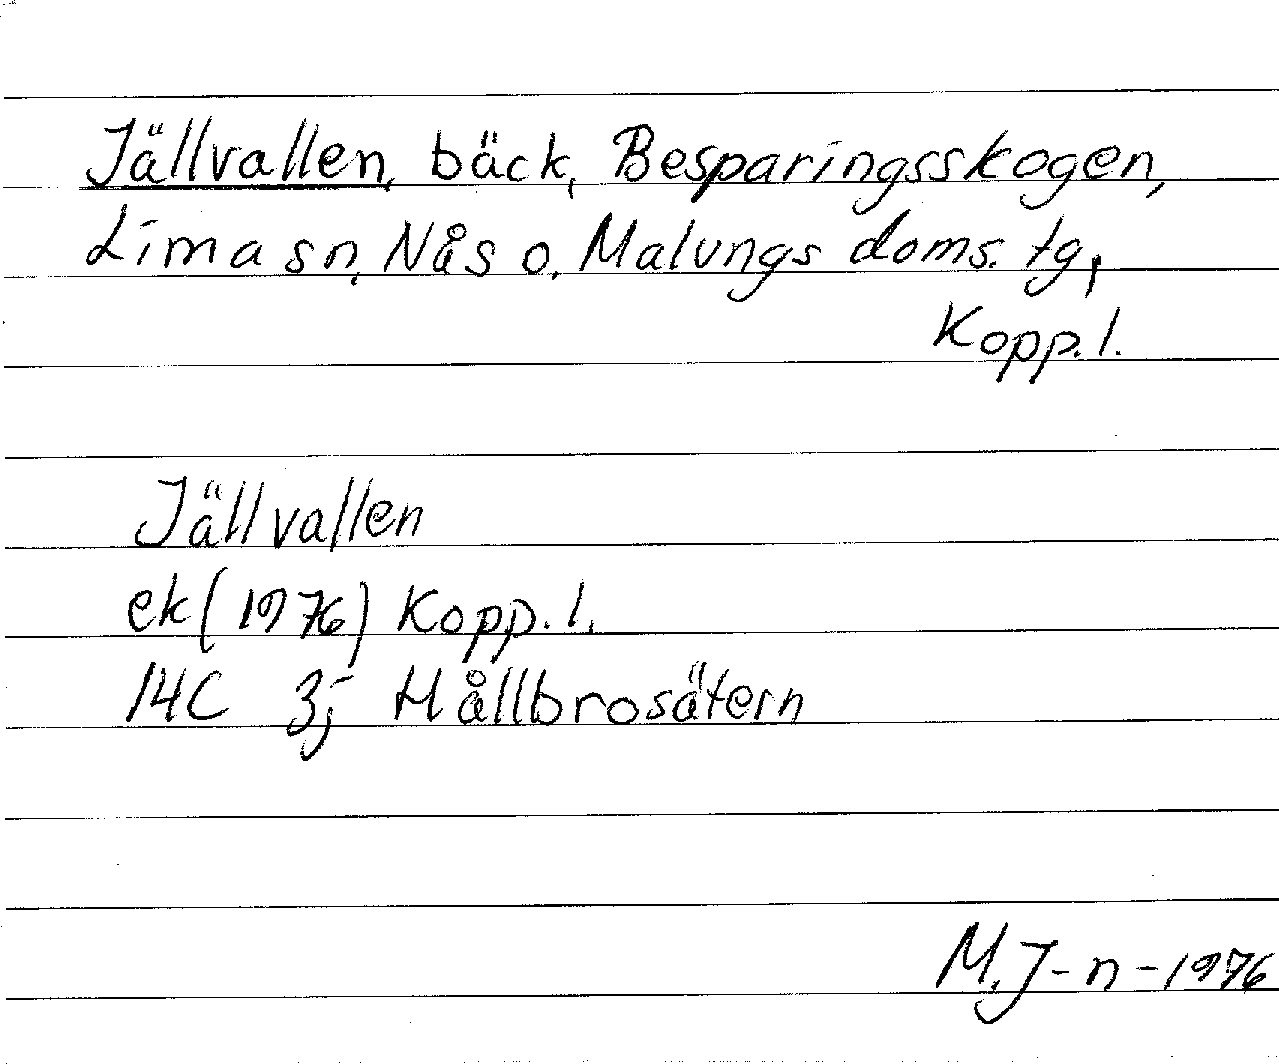 Jällvallen, bäck, Besparingsskogen,
Lima sn, Nås o. Malungs doms. tg,
Kopp. l.
Jällvallen
ek (1976) Kopp. l.
14C 3j Hållbrosätern
M.J-n-1976